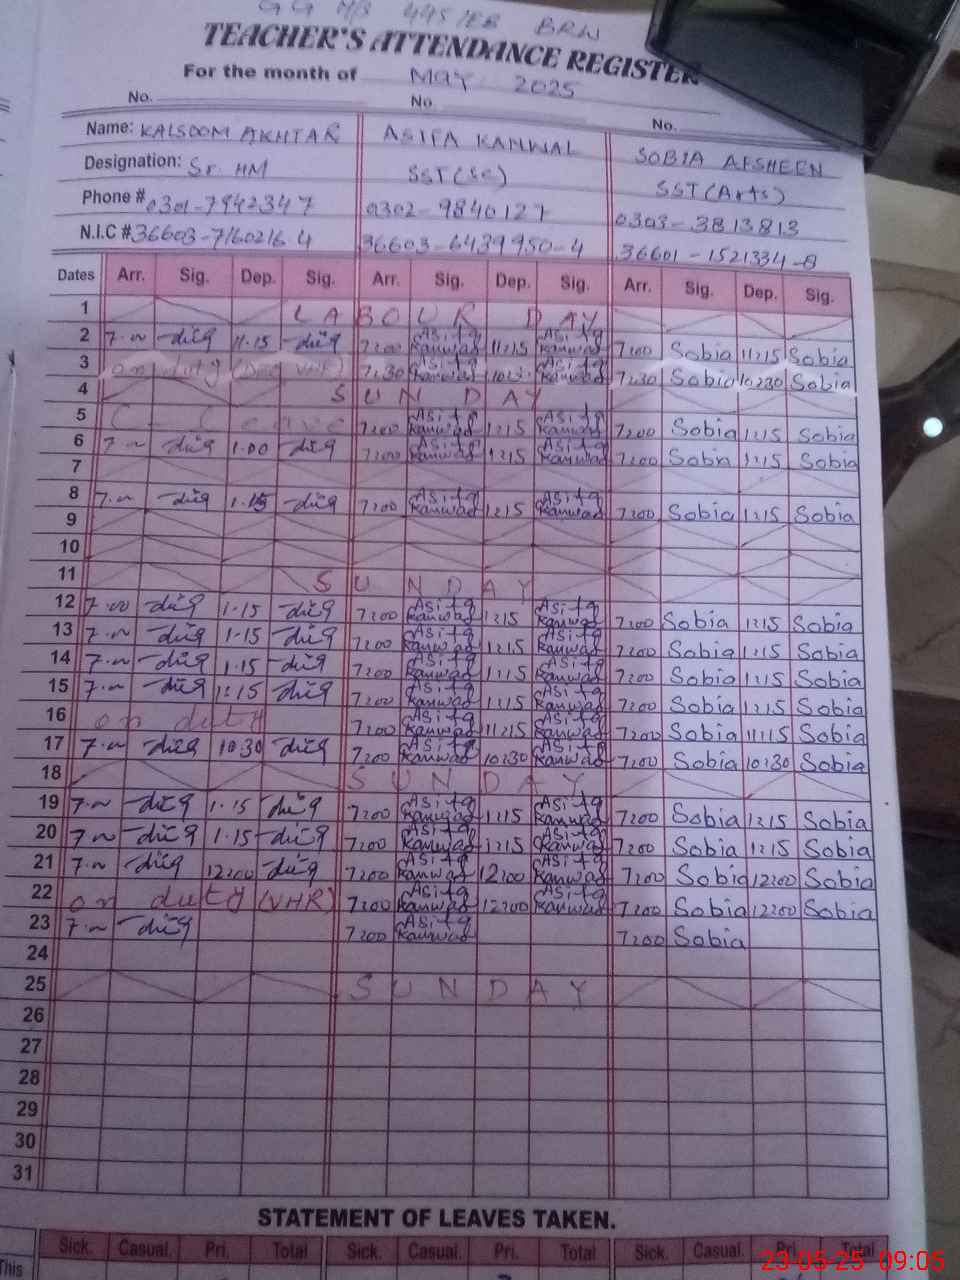 GG M/S 445/EB BRW
TEACHER'S ATTENDANCE REGISTER
For the month of May 2025
No. No. No.
Name: KALSOOM AKHTAR ASIFA KANWAL SOBIA AFSHEEN
Designation: Sr. HM SST(Sc) SST(Arts)
Phone # 0301-7942347 0302-9840127 0303-3813813
N.I.C # 36603-7160216 4 36603-6439950-4 36601-1521334-8
Dates Arr. Sig. Dep. Sig. Arr. Sig. Dep. Sig. Arr. Sig. Dep. Sig.
1 LABOUR DAY
2 11.15 7:00 Asifa Kanwal 11:15 Asifa Kanwal 7:00 Sobia 11:15 Sobia
3 on duty 7:30 Asifa Kanwal Asifa Kanwal 7:30 Sobia 10:30 Sobia
4 SUN DAY
5 C Leave 7:00 Asifa Kanwal 1:15 Asifa Kanwal 7:00 Sobia 1:15 Sobia
6 1.00 7:00 Asifa Kanwal 1:15 Asifa Kanwal 7:00 Sobia 1:15 Sobia
7
8 1.15 7:00 Asifa Kanwal 1:15 Asifa Kanwal 7:00 Sobia 1:15 Sobia
9
10
11 SUNDAY
12 7.00 1.15 7:00 Asifa Kanwal 1:15 Asifa Kanwal 7:00 Sobia 1:15 Sobia
13 1.15 7:00 Asifa Kanwal 1:15 Asifa Kanwal 7:00 Sobia 1:15 Sobia
14 1.15 7:00 Asifa Kanwal 1:15 Asifa Kanwal 7:00 Sobia 1:15 Sobia
15 7:00 Asifa Kanwal 1:15 Asifa Kanwal 7:00 Sobia 1:15 Sobia
16 on duty 7:00 Asifa Kanwal 11:15 Asifa Kanwal 7:00 Sobia 11:15 Sobia
17 10.30 7:00 Asifa Kanwal 10:30 Asifa Kanwal 7:00 Sobia 10:30 Sobia
18 SUNDAY
19 1.15 7:00 Asifa Kanwal 1:15 Asifa Kanwal 7:00 Sobia 1:15 Sobia
20 1.15 7:00 Asifa Kanwal 1:15 Asifa Kanwal 7:00 Sobia 1:15 Sobia
21 12:00 7:00 Asifa Kanwal 12:00 Asifa Kanwal 7:00 Sobia 12:00 Sobia
22 on duty (VHR) 7:00 Asifa Kanwal 12:00 Asifa Kanwal 7:00 Sobia 12:00 Sobia
23 7:00 Asifa Kanwal 7:00 Sobia
24
25 SUNDAY
26
27
28
29
30
31
STATEMENT OF LEAVES TAKEN.
Sick. Casual. Pri. Total Sick. Casual. Pri. Total Sick. Casual. Pri. Total
This
23-05-25 09:05